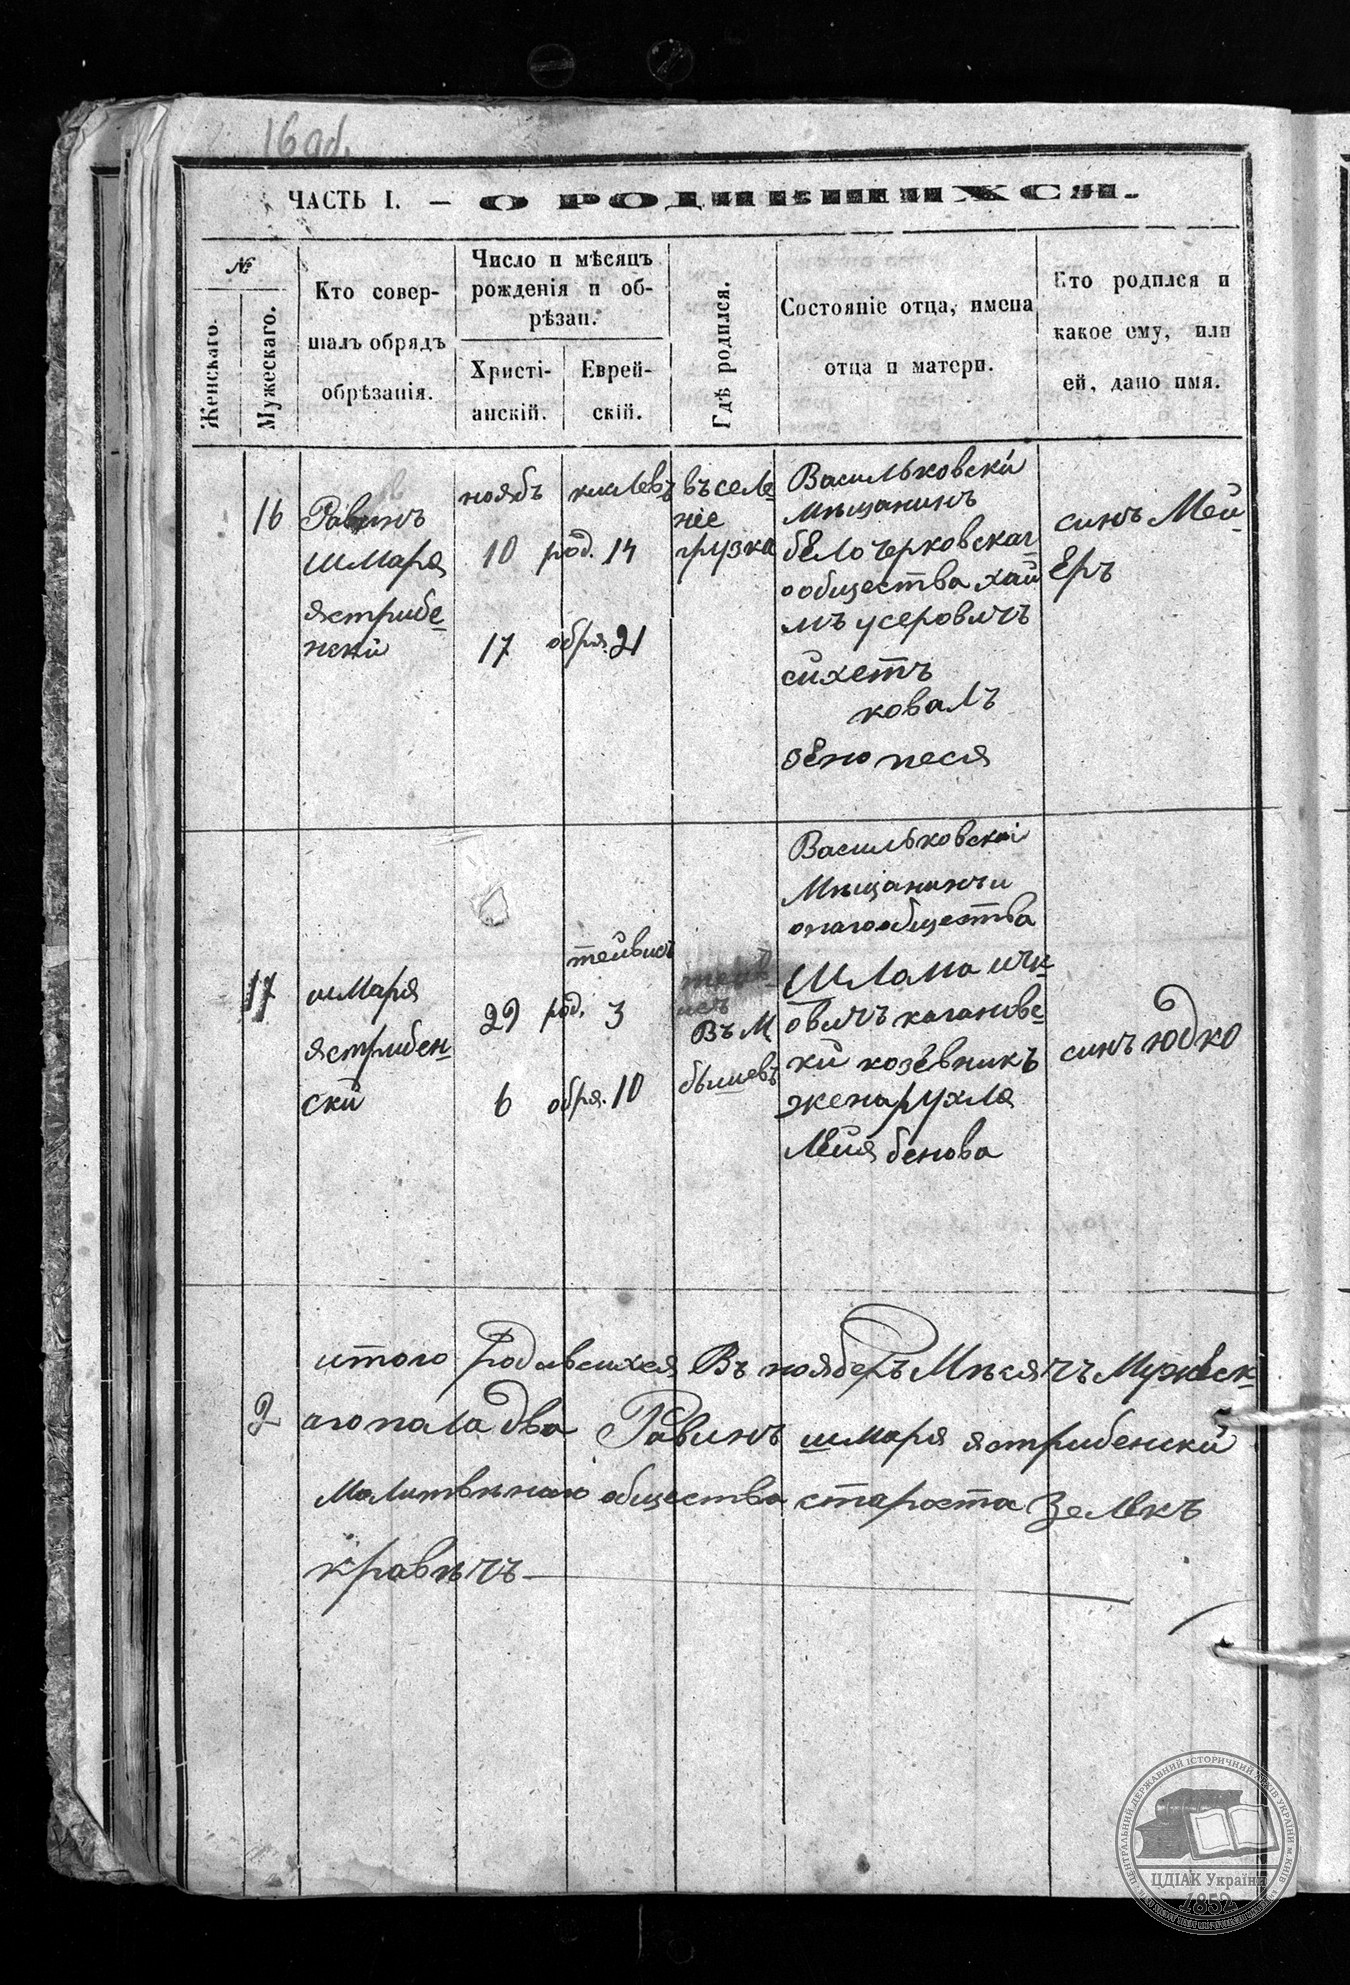 16 об.
ЧАСТЬ I. — О РОДИВШИХСЯ.
№
Женскаго.
Мужескаго.
Кто совер-
шалъ обрядъ
обрѣзанія.
Число и мѣсяцъ
рожденія и об-
рѣзан.
Христі-
анскій.
Еврей-
скій.
Гдѣ родился.
Состояніе отца, имена
отца и матери.
Кто родился и
какое ему, или
ей, дано имя.
16
Равинъ
шмаря
ястрибе-
нски
ноябъ
10
17
кислевъ
род. 14
обря. 21
въ селе-
ніе
грузка
Васильковски
мѣщанинъ
бело черковскаг-
о общества хаи
мъ усеровичъ
сихетъ
ковалъ
зено песя
синъ Мей-
Еръ
17
шмаря
ястрибен-
ски
29
6
тейвисъ
род. 3
обря. 10
Въ М
бышевъ
Васильковски
Мѣщанинъ и
онаго общества
Шлома ичк-
овичъ каганове-
ки козевникъ
жена рухля
Лейя бенова
синъ юдко
итого родившихся Въ нояберъ Мѣсячъ Мужеск-
2
аго пола два Равинъ шмаря ястрибенски
Молитвѣнаго общества староста Зелекъ
кравѣчъ
ЦЕНТРАЛЬНИЙ ДЕРЖАВНИЙ ІСТОРИЧНИЙ АРХІВ УКРАЇНИ м. КИЇВ
ЦДІАК України
1852